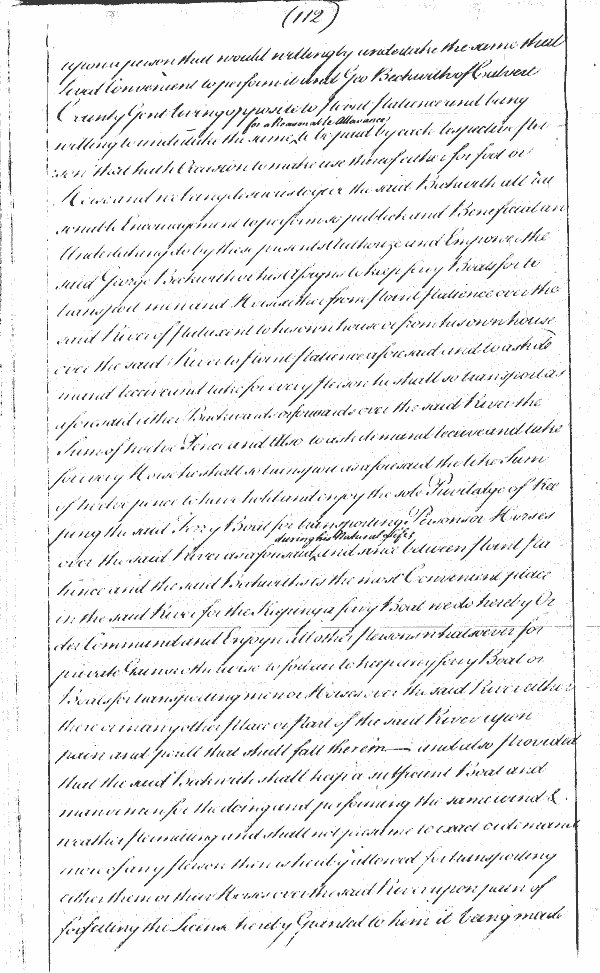 (112)
upon a person that would willingly undertake the same that
lived Convenient to perform it and Geo Beckwith of Calvert
County Gent living opposite to Point Patience and being
for a Reasonable Allowance
willing to undertake the same to be paid by each respective Per
son that hath Occasion to make use thereof either for foot or
Horse and we being desirous to give the said Beckwith all rea
sonable Encouragement to perform so publick and Beneficial an
Undertaking do by these presents Authorize and Empower the
said George Beckwith or his Assigns to keep ferry Boats for to
transport men and Horses either from Point Patience over the
said River of Patuxent to his own house or from his own house
over the said River to Point Patience aforesaid and to ask de
mand receive and take for every Person he shall so transport as
aforesaid either Backwards or forwards over the said River the
Sum of twelve Pence and Also to ask demand receive and take
for every Horse he shall so transport as aforesaid the like Sum
of twelve pence to have hold and enjoy the sole Priviledge of kee
ping the said Ferry Boat for transporting Persons or Horses
during his Natural Life
over the said River as aforesaid and since between Point Pa
tience and the said Beckwiths is the most Convenient place
in the said River for the Keeping a ferry Boat we do hereby Or
der Command and Enjoyn all other Persons whatsoever for
private Gain or otherwise to forbear to keep any ferry Boat or
Boats for transporting men or Horses over the said River either
there or in any other Place or Part of the said River upon
pain and perill that shall fall therein and also Provided
that the said Beckwith shall keep a sufficient Boat and
man or men for the doing and performing the same wind &
weather permitting and shall not presume to exact or demand
more of any Person then is hereby allowed for transporting
either them or their Horses over the said River upon pain of
forfeiting the Licence hereby Granted to him it being made